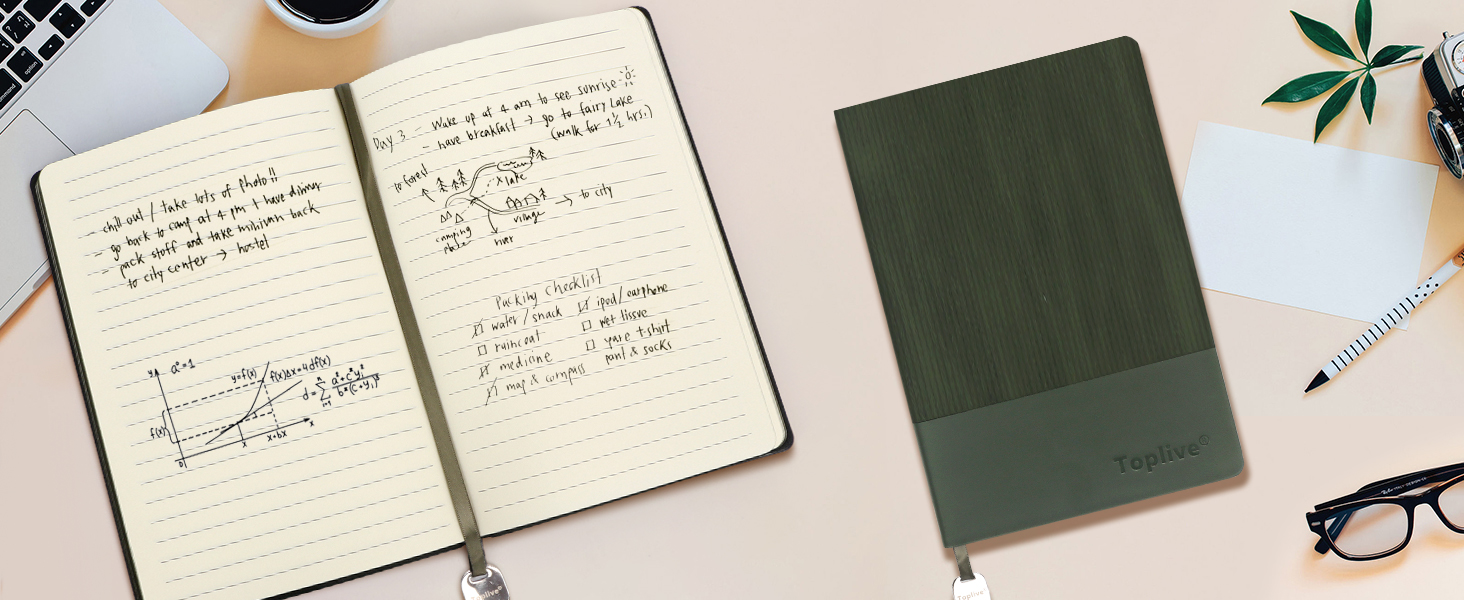 option
command
- chill out / take lots of photo!!
- go back to camp at 4 pm + have dinner
- pack stuff and take minivan back
to city center → hostel
a°=1
y
y=f(x)
f(x)Δx=4df(x)
f(x)
0
x
x+bx
x
Day 3 - Wake up at 4 am to see sunrise
- have breakfast → go to fairy Lake
(walk for 1½ hrs.)
to forest
x lake
village
→ to city
camping
place
river
Packing Checklist
water / snack
raincoat
medicine
map & compass
ipod / earphone
wet tissue
pant & socks
Toplive®
Toplive®
Toplive®